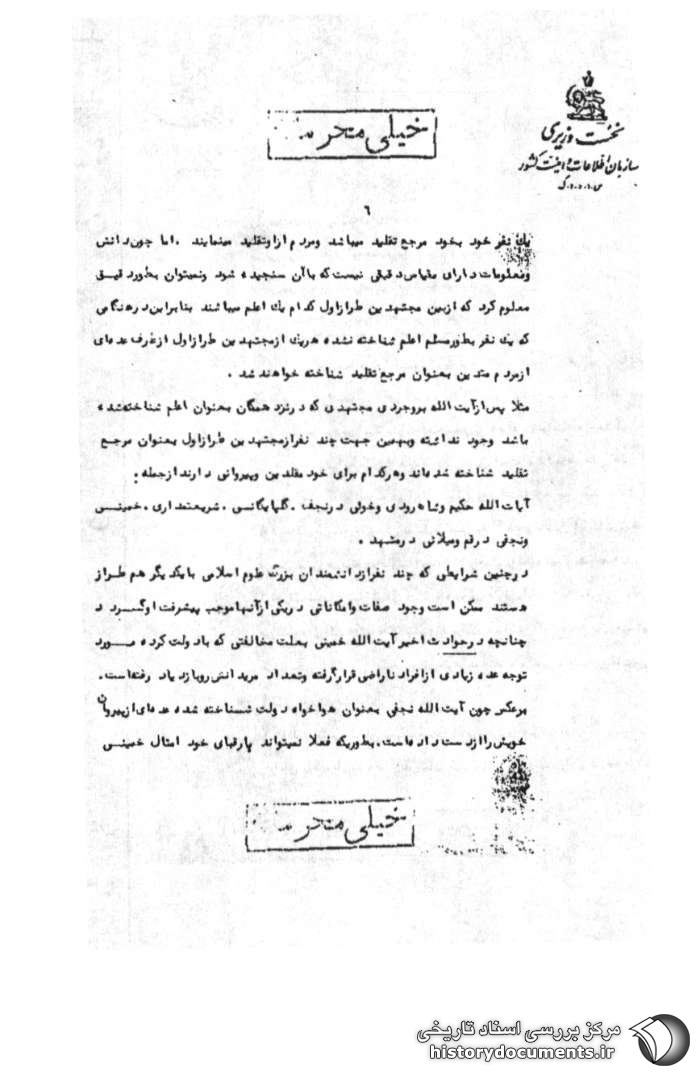 خیلی محرمانه
نخست وزیری
سازمان اطلاعات و امنیت کشور
س.ا.و.ا.ک
۶
یک نفر خود بخود مرجع تقلید میباشد ومردم ازاوتقلید مینمایند .اما چون دانش
ومعلومات دارای مقیاس دقیقی نیست که باآن سنجیده شود ونمیتوان بطور دقیق
معلوم کرد که ازبین مجتهدین طرازاول کدام یک اعلم میباشند بنابراین درهنگامی
که یک نفر بطورمسلم اعلم شناخته نشده هریک ازمجتهدین طرازاول ازطرف عده‌ای
ازمردم متدین بعنوان مرجع تقلید شناخته خواهند شد .
مثلا پس ازآیت الله بروجردی مجتهدی که درنزد همگان بعنوان اعلم شناخته‌شده
باشد وجود نداشته وبهمین جهت چند نفرازمجتهدین طرازاول بعنوان مرجع
تقلید شناخته شده‌اند وهرکدام برای خود مقلدین وپیروانی دارند ازجمله :
آیات الله حکیم وشاهرودی وخوئی درنجف .گلپایگانی .شریعتمداری .خمینی
ونجفی درقم ومیلانی درمشهد .
درچنین شرایطی که چند نفرازدانشمندان بزرگ علوم اسلامی بایکدیگر هم طراز
هستند ممکن است وجود صفات وامکاناتی دریکی ازآنها موجب پیشرفت اوگردد
چنانچه درحوادث اخیر آیت الله خمینی بعلت مخالفتی که بادولت کرده مورد
توجه عده زیادی ازافراد ناراضی قرارگرفته وتعداد مریدانش روبازدیاد رفته‌است.
برعکس چون آیت الله نجفی بعنوان هواخواه دولت شناخته شده عده‌ای ازپیروان
خویش راازدست داده‌است.بطوریکه فعلا نمیتواند بارقبای خود امثال خمینی
خیلی محرمانه
مرکز بررسی اسناد تاریخی
historydocuments.ir